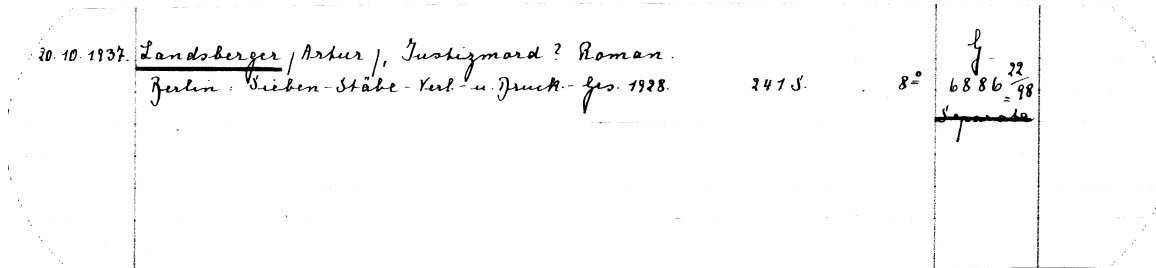 20.10.1937. Landsberger, (Artur), Justizmord? Roman.
Berlin: Sieben-Stäbe-Verl.-u. Druck.-Ges. 1928. 241 S. 8°
G
6886 22/98
Separata